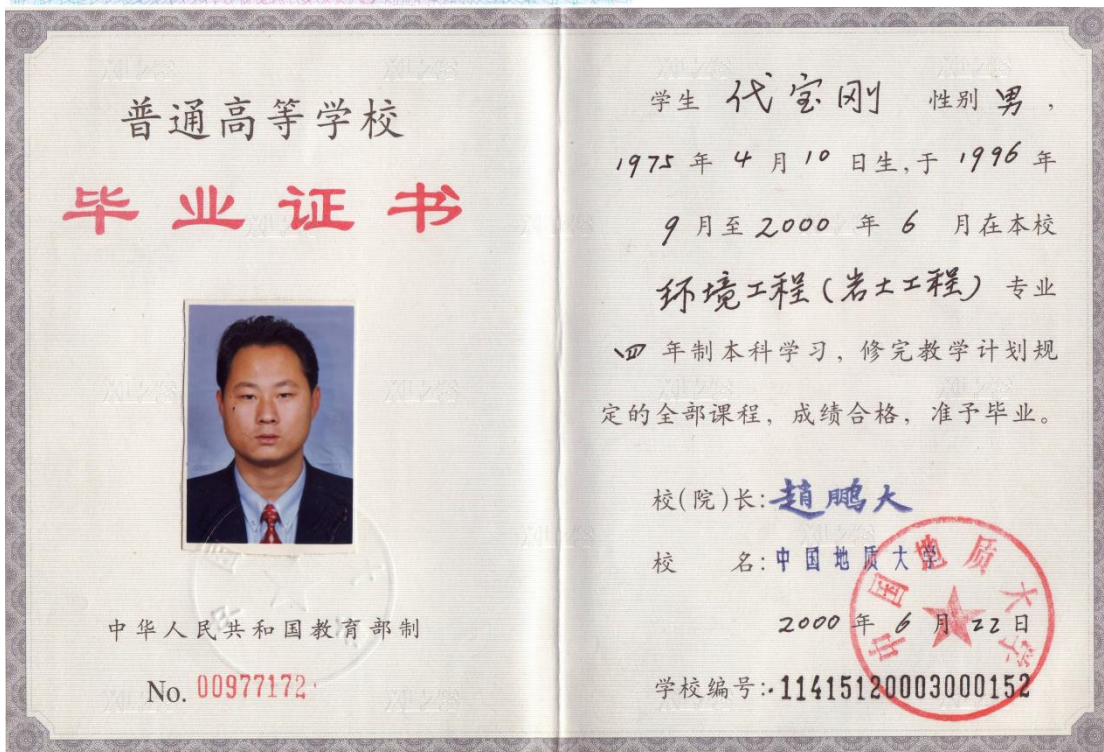 普通高等学校
毕业证书
中华人民共和国教育部制
No. 00977172
学生 代宝刚 性别 男,
1975 年 4 月 10 日生,于 1996 年
9 月至 2000 年 6 月在本校
环境工程(岩土工程) 专业
四 年制本科学习, 修完教学计划规
定的全部课程, 成绩合格, 准予毕业。
校(院)长: 趙鹏大
校 名: 中国地质大学
中国地质大学
2000 年 6 月 22 日
学校编号: 11415120003000152